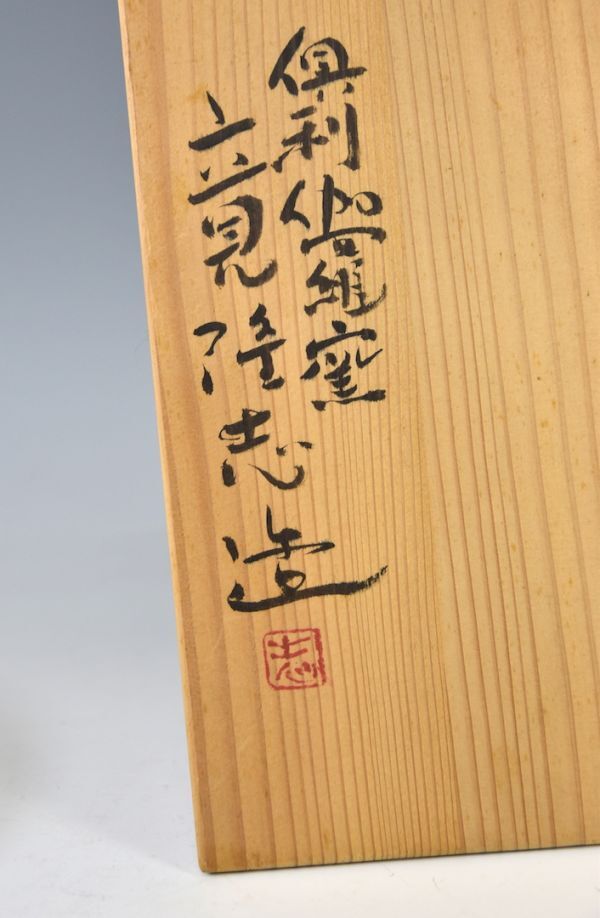 倶利伽羅窯
立見隆志造
志